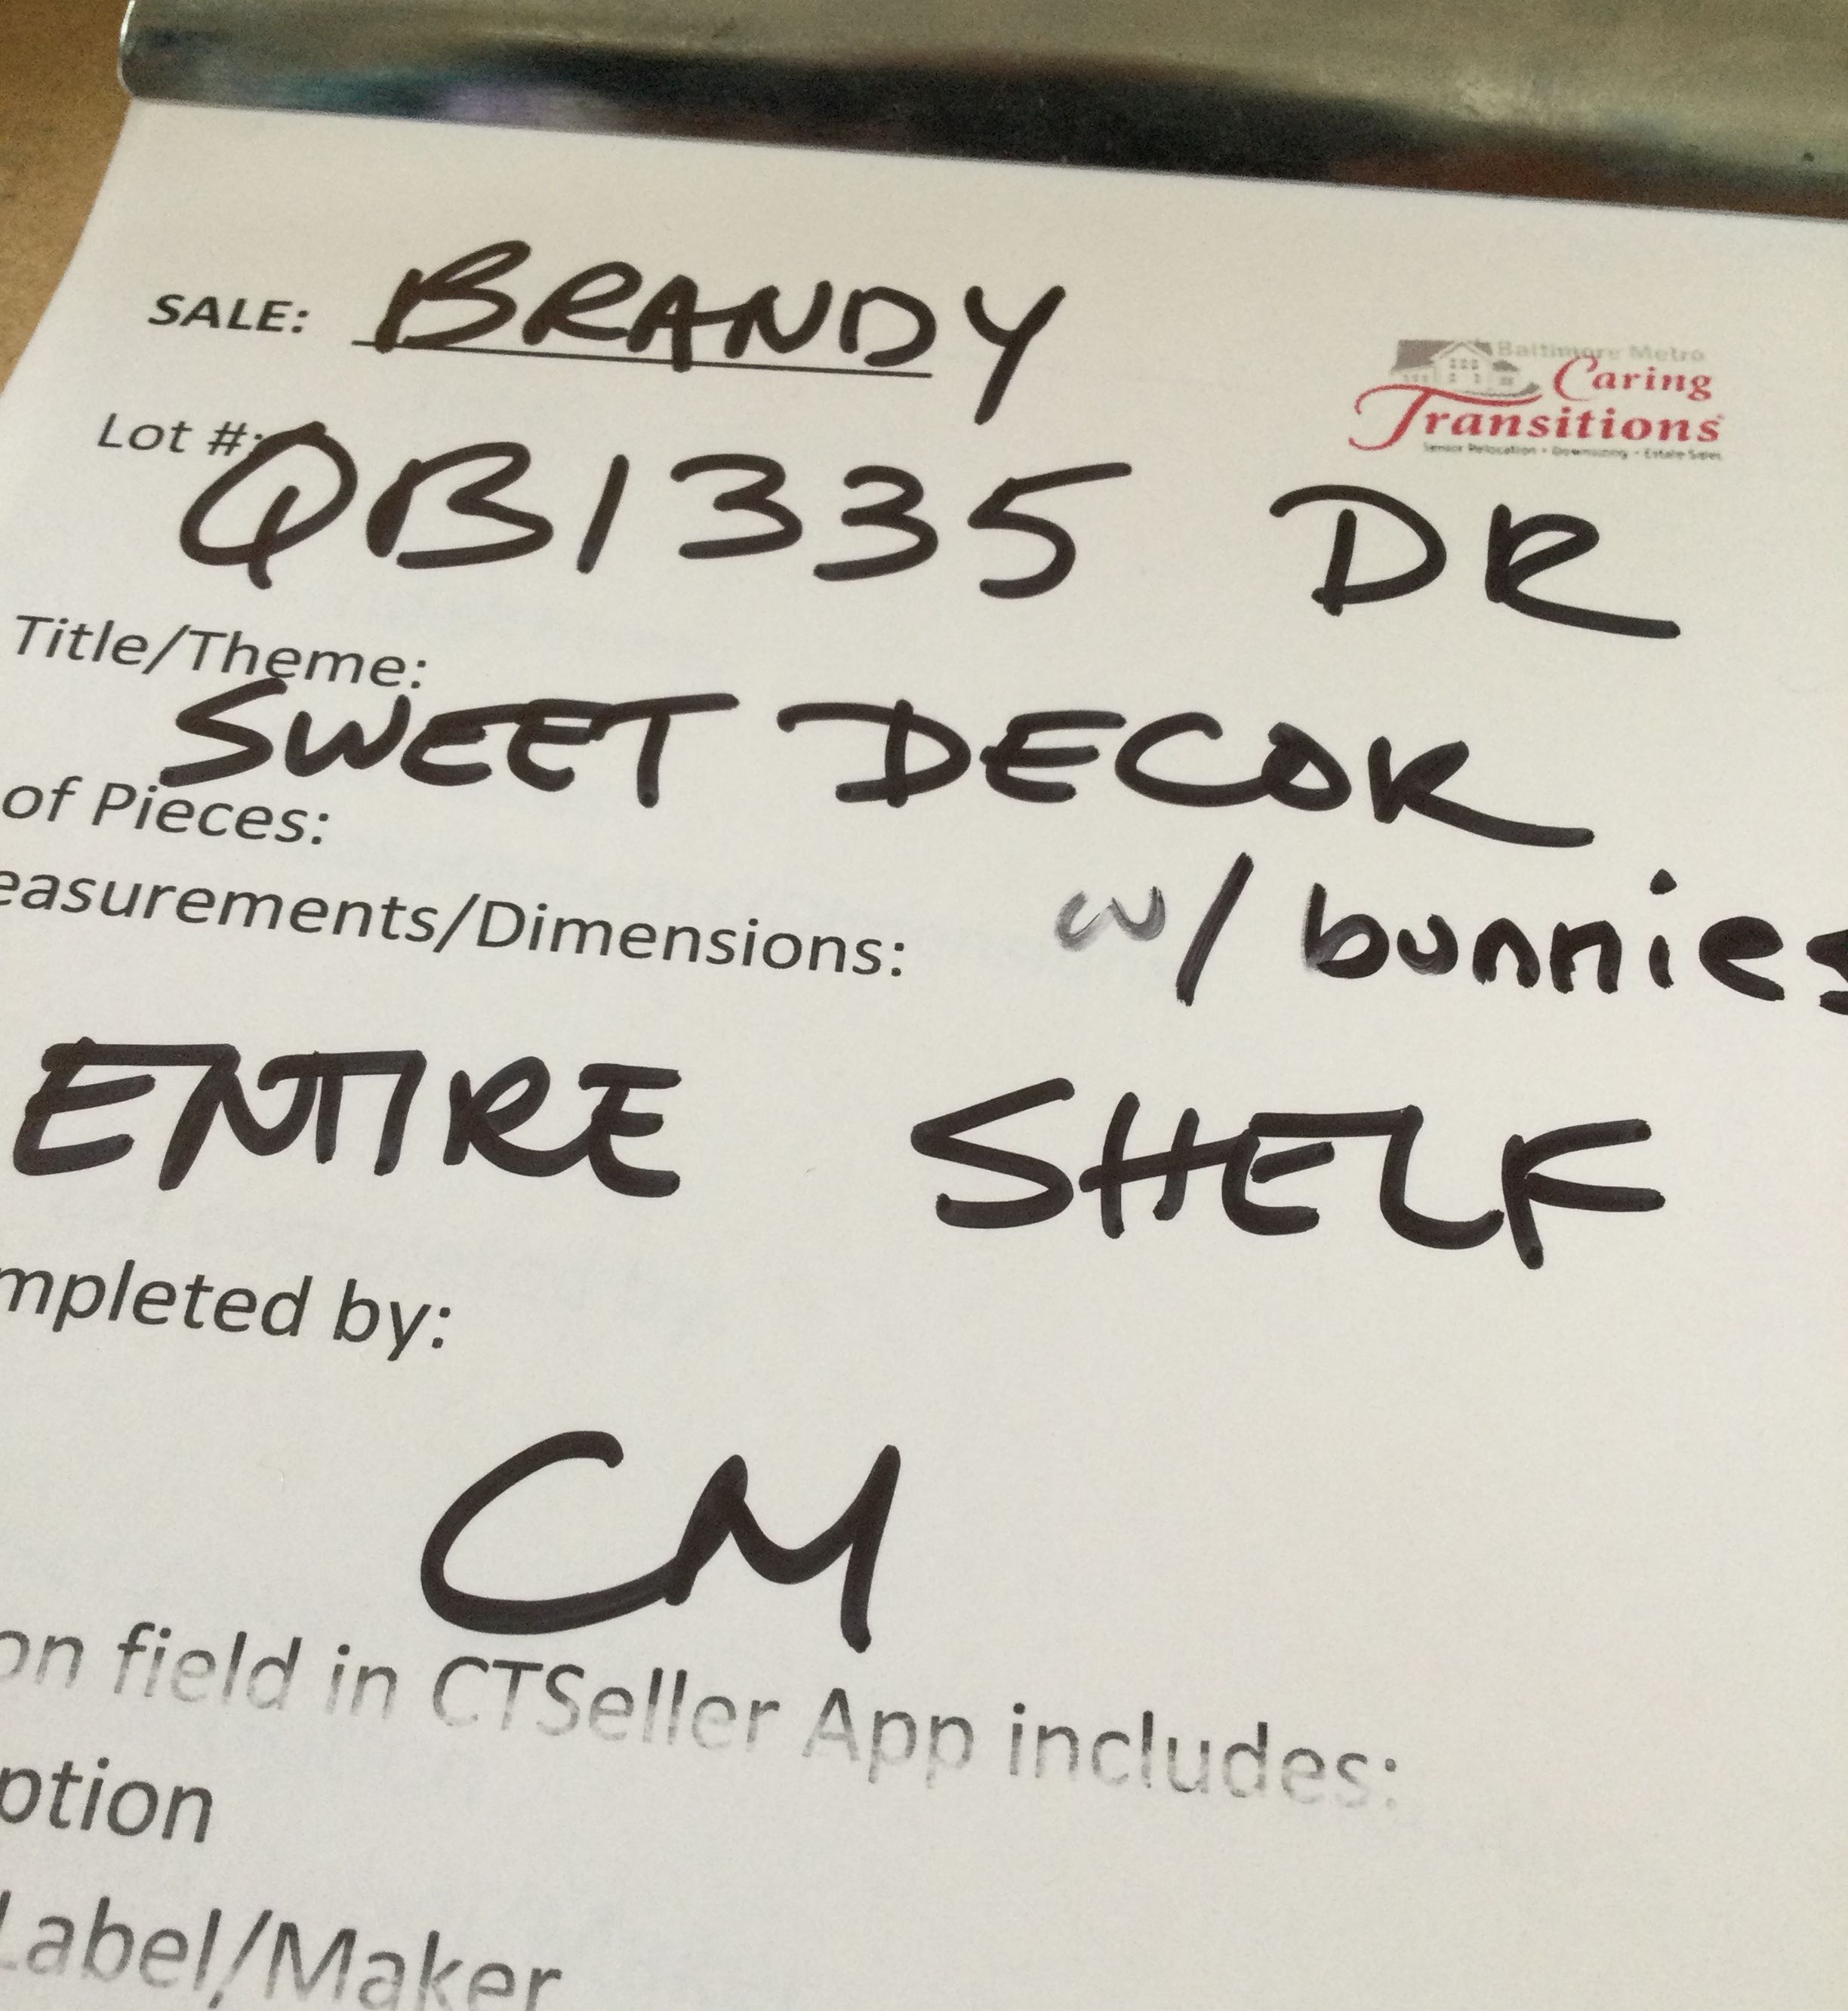 SALE: BRANDY
Baltimore Metro
Caring
Transitions
Senior Relocation • Downsizing • Estate Sales
Lot #: QB1335 DR
Title/Theme:
SWEET DECOR
of Pieces:
w/ bunnies
easurements/Dimensions:
ENTIRE SHELF
mpleted by:
CM
on field in CTSeller App includes:
ption
Label/Maker